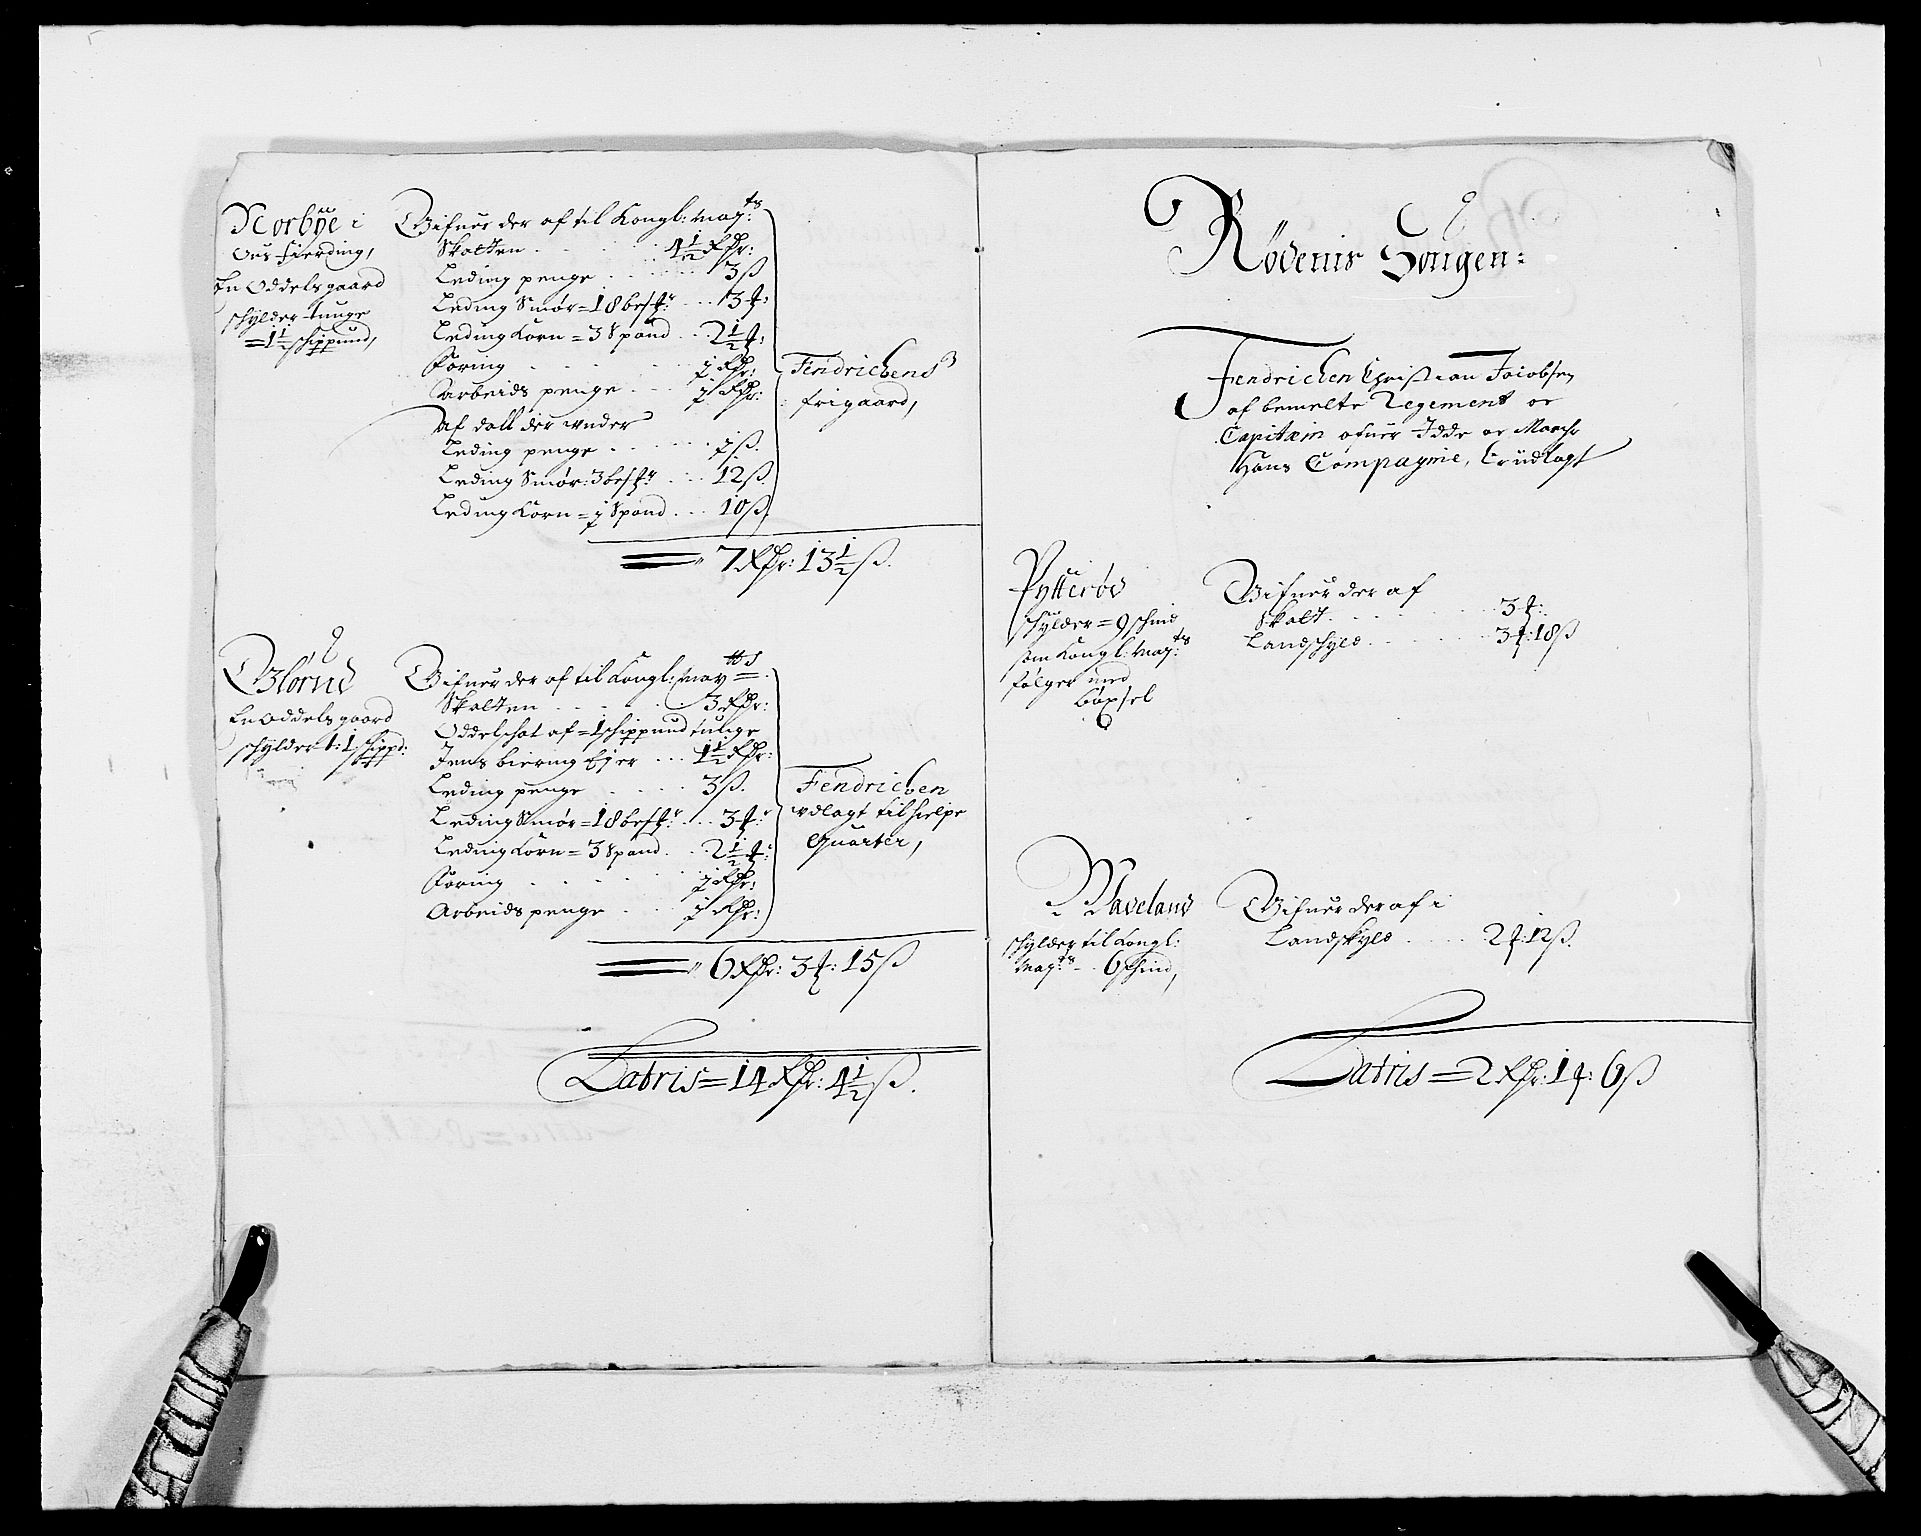 Norbÿe i
Ous fierding,
En Oddelsgaard
schÿlder tunge
= 1½ schippund,
Gifuer der af til Kongl: Maÿ:ts
Skatten . . . . 4½ Rdr:
Leding penge . . . . 3 ß
Leding Smør = 18 besmr: . . . 3 ƒ:
Leding Korn = 3 Spand . . 2½ ƒ:
Foring . . . . j Rdr:
Arbeids penge . . . j Rdr:
Af dall der under
Leding penge . . . . j ß.
Leding Smør: 3 besmr: . . . 12 ß.
Leding Korn = j Spand . . . 10 ß.
Fendrichens
frigaard,
= 7 Rdr: 13½ ß.
Glørud
En Oddelsgaard
schÿlder t: 1 schippd:
Gifuer der af til Kongl: May:tts
Skatten . . . . 3 Rdr:
Oddelschat af = 1 schippund tunge
Jens biering Ejer . . . 1½ Rdr:
Leding penge . . . . 3 ß.
Leding Smør = 18 besmr: . . . 3 ƒ:
Leding Korn = 3 Spand . . 2½ ƒ:
Foring . . . . j Rdr:
Arbeids penge . . . j Rdr:
Fendrichen
udlagt til hielpe
Quarter,
= 6 Rdr: 3 ƒ: 15 ß
Latris = 14 Rdr: 4½ ß.
Rødenis Sougen:
Fendrichen Christian Jacobsen
af bemelte Regement oc
Capitain ofuer Idde oc March
Hans Compagnie, Er üdlagt
Pytterød
schÿlder = 9 schind
som Kongl: May:ts
følger med
böxsel
Gifuer der af
Skatt . . . . 3 ƒ:
Landschyld . . . . 3 ƒ: 18 ß
Waveland
schÿlder til Kongl:
May:ts - 6 schind,
Gifuer der af i
Landskyld . . . . 2 ƒ: 12 ß.
Latris = 2 Rdr: 1 ƒ: 6 ß